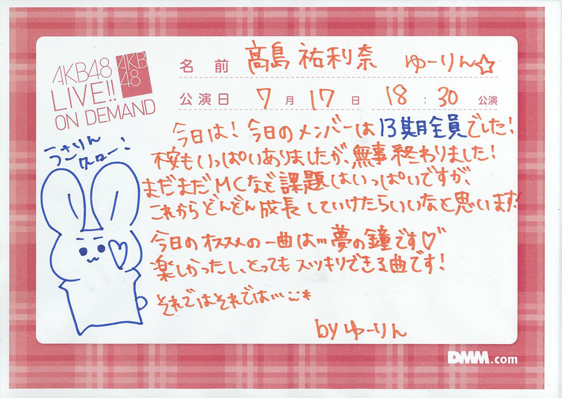 AKB48
LIVE!!
ON DEMAND
AKB
48
名前 髙島祐利奈 ゆーりん☆
公演日 7月17日 18:30 公演
今日は!今日のメンバーは13期全員でした!
不安もいっぱいありましたが、無事終わりました!
まだまだMCなど課題はいっぱいですが、
これからどんどん成長していけたらいいなと思います!
今日のオススメの一曲は…夢の鐘です♡
楽しかったし、とってもスッキリできる曲です!
それではそれでは…
byゆーりん
DMM.com